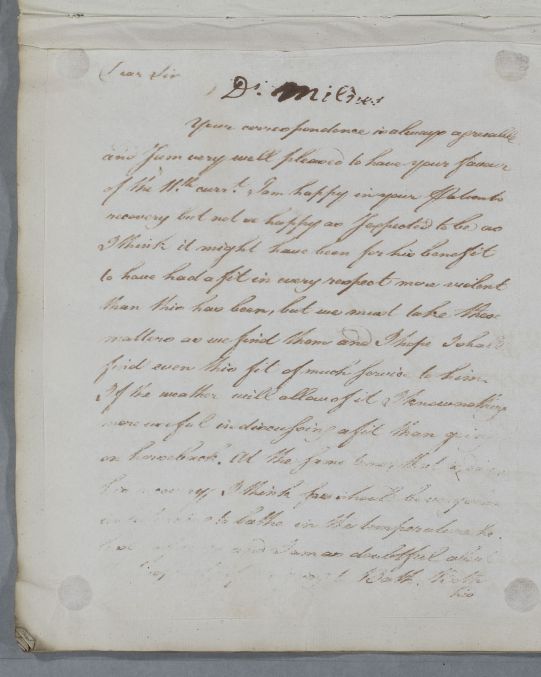 Dear Sir
Dr. Milnes
Your correspondence is always agreeable
and I am very well pleased to have your favour
of the 11th currt. I am happy in your Patients
recovery but not so happy as I expected to be as
I think it might have been for his benefit
to have had a fit in every respect more violent
than this has been, but we must take these
matters as we find them and I hope I shall
find even this fit of much service to him.
If the weather will allow of it I know nothing
more useful in discussing a fit than going
on horseback. At the same time that
his recovery I think he should be
bathe in the temperature
and I am as doubtful about
Bath
his